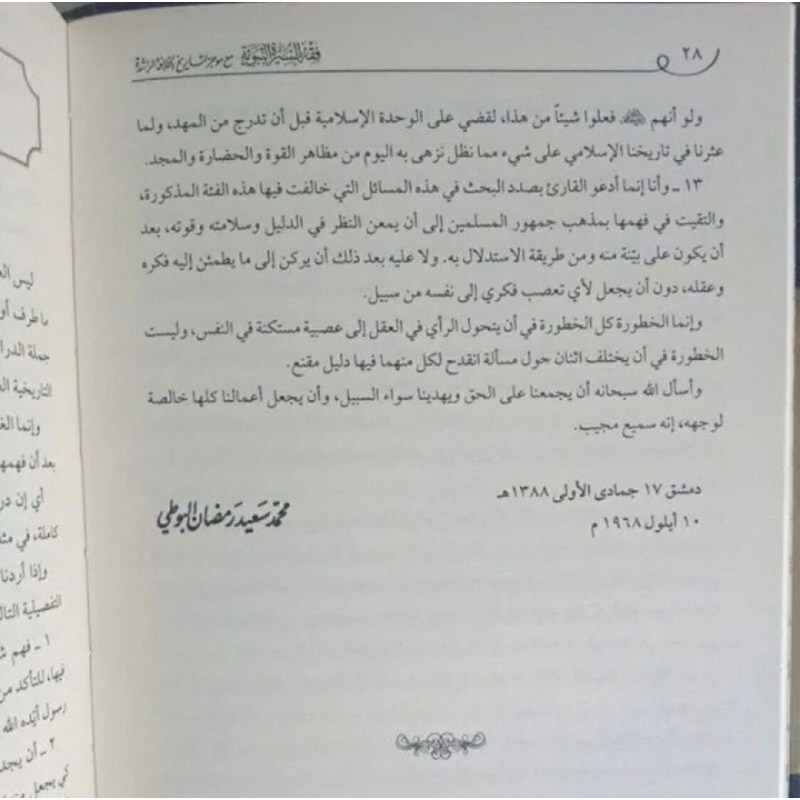 ٢٨
فقه السيرة النبوية مع موجز لتاريخ الخلافة الراشدة
ولو أنهم ﷺ فعلوا شيئاً من هذا، لقضي على الوحدة الإسلامية قبل أن تدرج من المهد، ولما
عثرنا في تاريخنا الإسلامي على شيء مما نظل نزهى به اليوم من مظاهر القوة والحضارة والمجد.
١٣ ـ وأنا إنما أدعو القارئ بصدد البحث في هذه المسائل التي خالفت فيها هذه الفئة المذكورة،
والتقيت في فهمها بمذهب جمهور المسلمين إلى أن يمعن النظر في الدليل وسلامته وقوته، بعد
أن يكون على بيّنة منه ومن طريقة الاستدلال به. ولا عليه بعد ذلك أن يركن إلى ما يطمئن إليه فكره
وعقله، دون أن يجعل لأي تعصب فكري إلى نفسه من سبيل.
وإنما الخطورة كل الخطورة في أن يتحول الرأي في العقل إلى عصبية مستكنة في النفس، وليست
الخطورة في أن يختلف اثنان حول مسألة انقدح لكل منهما فيها دليل مقنع.
وأسأل الله سبحانه أن يجمعنا على الحق ويهدينا سواء السبيل، وأن يجعل أعمالنا كلها خالصة
لوجهه، إنه سميع مجيب.
دمشق ١٧ جمادى الأولى ١٣٨٨هـ
١٠ أيلول ١٩٦٨ م
محمد سعيد رمضان البوطي
ليس
ما طرف
جملة
التاريخية
وإنما
بعد أن فهمها
أي إن
كاملة، في
وإذا أردنا
التفصيلية
١ ـ فهم
فيها، للتأكد من
رسول أيّده الله
٢ ـ أن يجد
كي يجعل